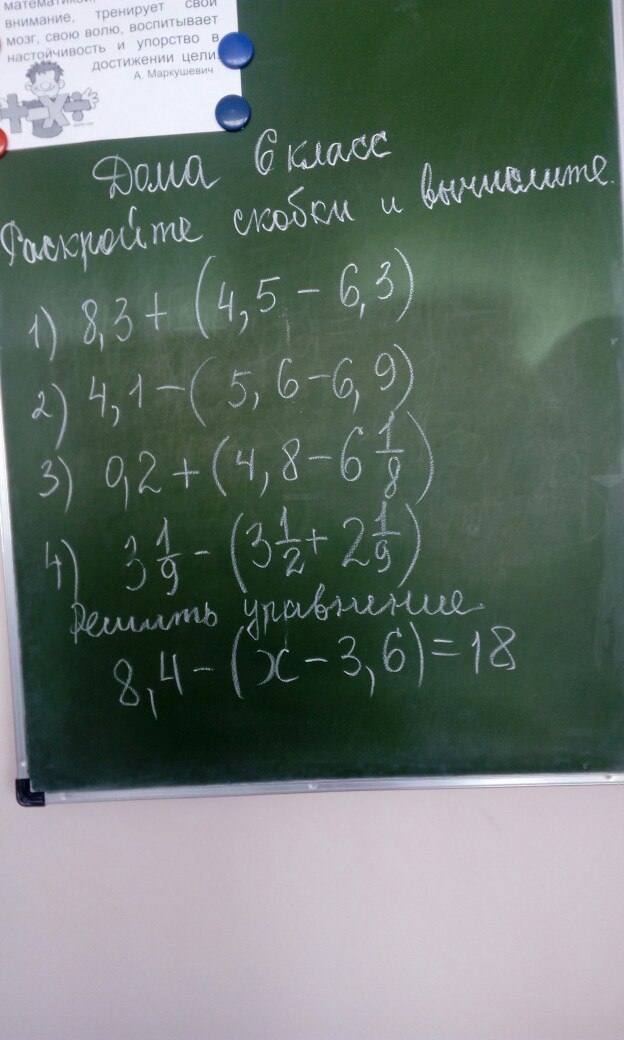 математикой,
внимание, тренирует свой
мозг, свою волю, воспитывает
настойчивость и упорство в
достижении цели.
А. Маркушевич
Дома 6 класс
Раскройте скобки и вычислите.
1) 8,3 + (4,5 - 6,3)
2) 4,1 - (5,6 - 6,9)
3) 0,2 + (4,8 - 6 1/8)
4) 3 1/9 - (3 1/2 + 2 1/9)
Решить уравнение
8,4 - (x - 3,6) = 18